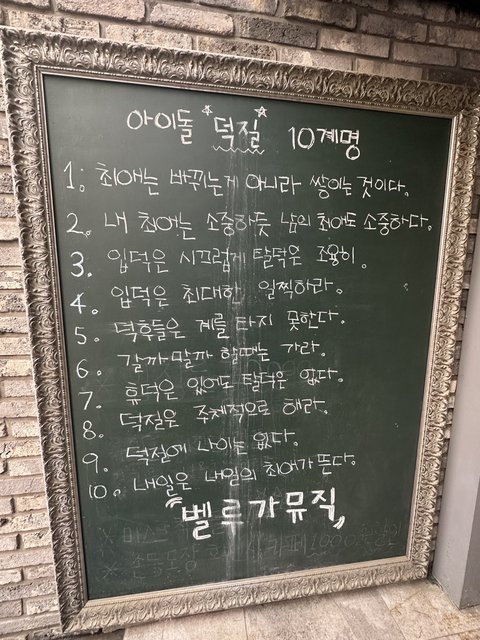 아이돌 덕질 10계명
1. 최애는 바뀌는게 아니라 쌓이는 것이다.
2. 내 최애는 소중하듯 남의 최애도 소중하다.
3. 입덕은 시끄럽게 탈덕은 조용히.
4. 입덕은 최대한 일찍하라.
5. 덕후들은 계를 타지 못한다.
6. 갈까말까 할때는 가라.
7. 휴덕은 있어도 탈덕은 없다.
8. 덕질은 주체적으로 해라.
9. 덕질에 나이는 없다.
10. 내일은 내일의 최애가 뜬다.
"벨르가뮤직"